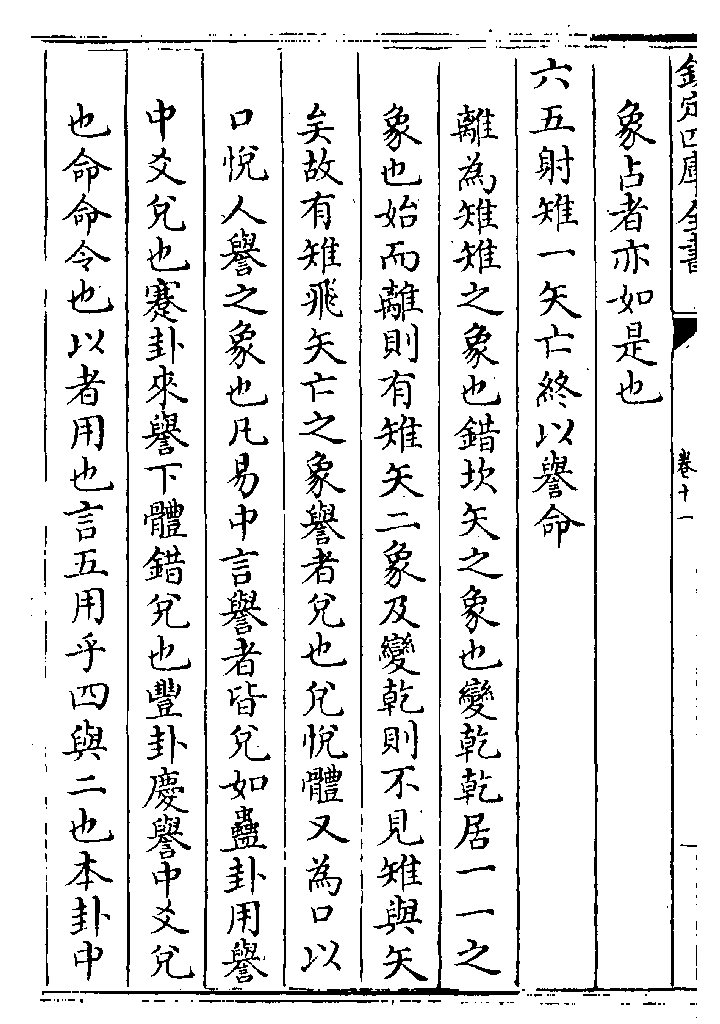 欽定四庫全書
卷十一
象占者亦如是也
六五射雉一矢亡終以譽命
離為雉雉之象也錯坎矢之象也變乾乾居一一之
象也始而離則有雉矢二象及變乾則不見雉與矢
矣故有雉飛矢亡之象譽者兌也兌悅體又為口以
口悅人譽之象也凡易中言譽者皆兌如蠱卦用譽
中爻兌也蹇卦來譽下體錯兌也豐卦慶譽中爻兌
也命命令也以者用也言五用乎四與二也本卦中